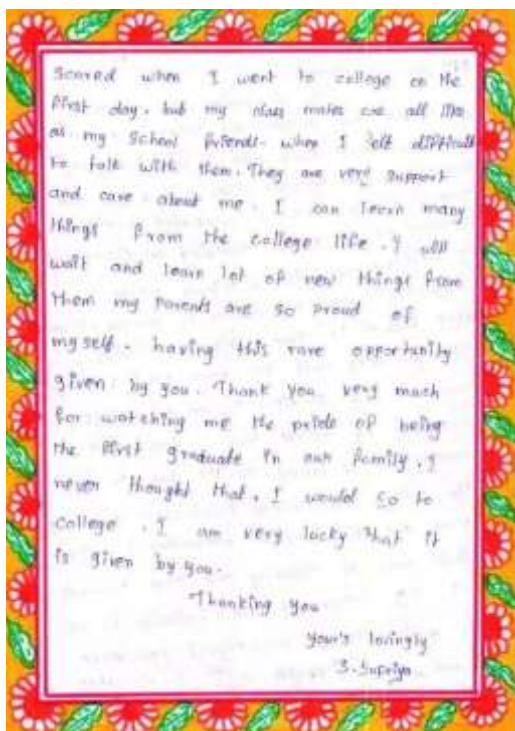 scared when I went to college on the
first day. but my class mates are all like
as my school friends. when I felt difficult
to talk with them. They are very support
and care about me. I can learn many
things from the college life. I will
wait and learn lot of new things from
them my parents are so proud of
my self. having this rare opportunity
given by you. Thank you very much
for watching me the pride of being
the first graduate in our family. I
never thought that, I would go to
college. I am very lucky that it
is given by you.
Thanking you
your's lovingly
S. Supriya